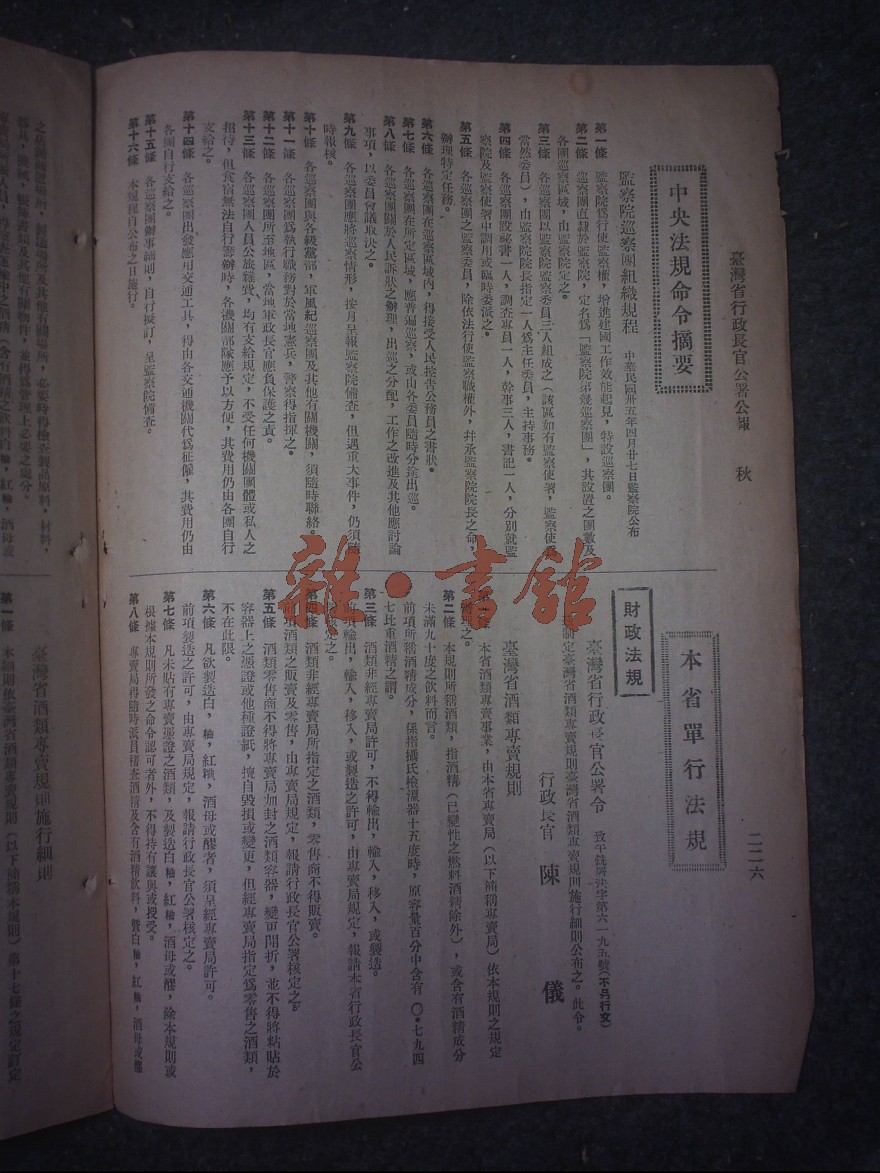 臺灣省行政長官公署公報 秋 二二六
中央法規命令摘要
監察院巡察團組織規程 中華民國卅五年四月廿七日監察院公布
第一條 監察院爲行使監察權,增進建國工作效能起見,特設巡察團。
第二條 巡察團直隸於監察院,定名爲「監察院第幾巡察團」,其設置之團數及
各團巡察區域,由監察院定之。
第三條 各巡察團以監察院監察委員三人組成之(該區如有監察使署,監察使爲
當然委員),由監察院院長指定一人爲主任委員,主持事務。
第四條 各巡察團設祕書一人,調查專員一人,幹事三人,書記一人,分別就監
察院及監察使署中調用或臨時委派之。
第五條 各巡察團之監察委員,除依法行使監察職權外,幷承監察院院長之命,
辦理特定任務。
第六條 各巡察團在巡察區域內,得接受人民控告公務員之書狀。
第七條 各巡察團在所定區域,應普遍巡察,或由各委員隨時分途出巡。
第八條 各巡察團關於人民訴狀之辦理,出巡之分配,工作之改進及其他應討論
事項,以委員會議取決之。
第九條 各巡察團應將巡察情形,按月呈報監察院備查,但遇重大事件,仍須隨
時報核。
第十條 各巡察團與各級黨部,軍風紀巡察團及其他有關機關,須隨時聯絡。
第十一條 各巡察團爲執行職務對於當地憲兵,警察得指揮之。
第十二條 各巡察團所至地區,當地軍政長官應負保護之責。
第十三條 各巡察團人員公旅雜費,均有支給規定,不受任何機關團體或私人之
招待,但食宿無法自行籌辦時,各機關部隊應予以方便,其費用仍由各團自行
支給之。
第十四條 各巡察團出發應用交通工具,得由各交通機關代爲征僱,其費用仍由
各團自行支給之。
第十五條 各巡察團辦事細則,自行擬訂,呈監察院備查。
第十六條 本規程自公布之日施行。
本省單行法規
財政法規
臺灣省行政長官公署令 致午 署法字第六一九五號(不另行文)
制定臺灣省酒類專賣規則臺灣省酒類專賣規則施行細則公布之。此令。
行政長官 陳 儀
臺灣省酒類專賣規則
第一條 本省酒類專賣事業,由本省專賣局(以下簡稱專賣局)依本規則之規定
辦理之。
第二條 本規則所稱酒類,指酒精(已變性之燃料酒精除外),或含有酒精成分
未滿九十度之飲料而言。
前項所稱酒精成分,係指攝氏檢溫器十五度時,原容量百分中含有〇•七九四
七比重酒精之謂。
第三條 酒類非經專賣局許可,不得輸出,輸入,移入,或製造。
前項輸出,輸入,移入,或製造之許可,由專賣局規定,報請本省行政長官公
署核定之。
第四條 酒類非經專賣局所指定之酒類,零售商不得販賣。
前項酒類之販賣及零售,由專賣局規定,報請行政長官公署核定之。
第五條 酒類零售商不得將專賣局加封之酒類容器,變更開折,並不得將粘貼於
容器上之憑證或他種證紙,擅自毀損或變更,但經專賣局指定爲零售之酒類,
不在此限。
第六條 凡欲製造白,麯,紅糀,酒母或醪者,須呈經專賣局許可。
前項製造之許可,由專賣局規定,報請行政長官公署核定之。
第七條 凡未貼有專賣憑證之酒類,及製造白麯,紅麯,酒母或醪,除本規則或
根據本規則所發之命令認可者外,不得持有讓與或授受。
第八條 專賣局得隨時派員稽查酒精及含有酒精飲料,暨白麯,紅麯,酒母或醪
之依無製造場所,制造場所及其他有關場所,必要時得檢查製品原料,材料,
器具,機械,帳簿書類及其他有關物件,並得爲管理上必要之處分。
中之酒精(含有酒精之飲料白麯,紅麯,酒母或
臺灣省酒類專賣規則施行細則
第一條 本細則依臺灣省酒類專賣規則(以下簡稱本規則)第十七條之規定訂定
雜•書館